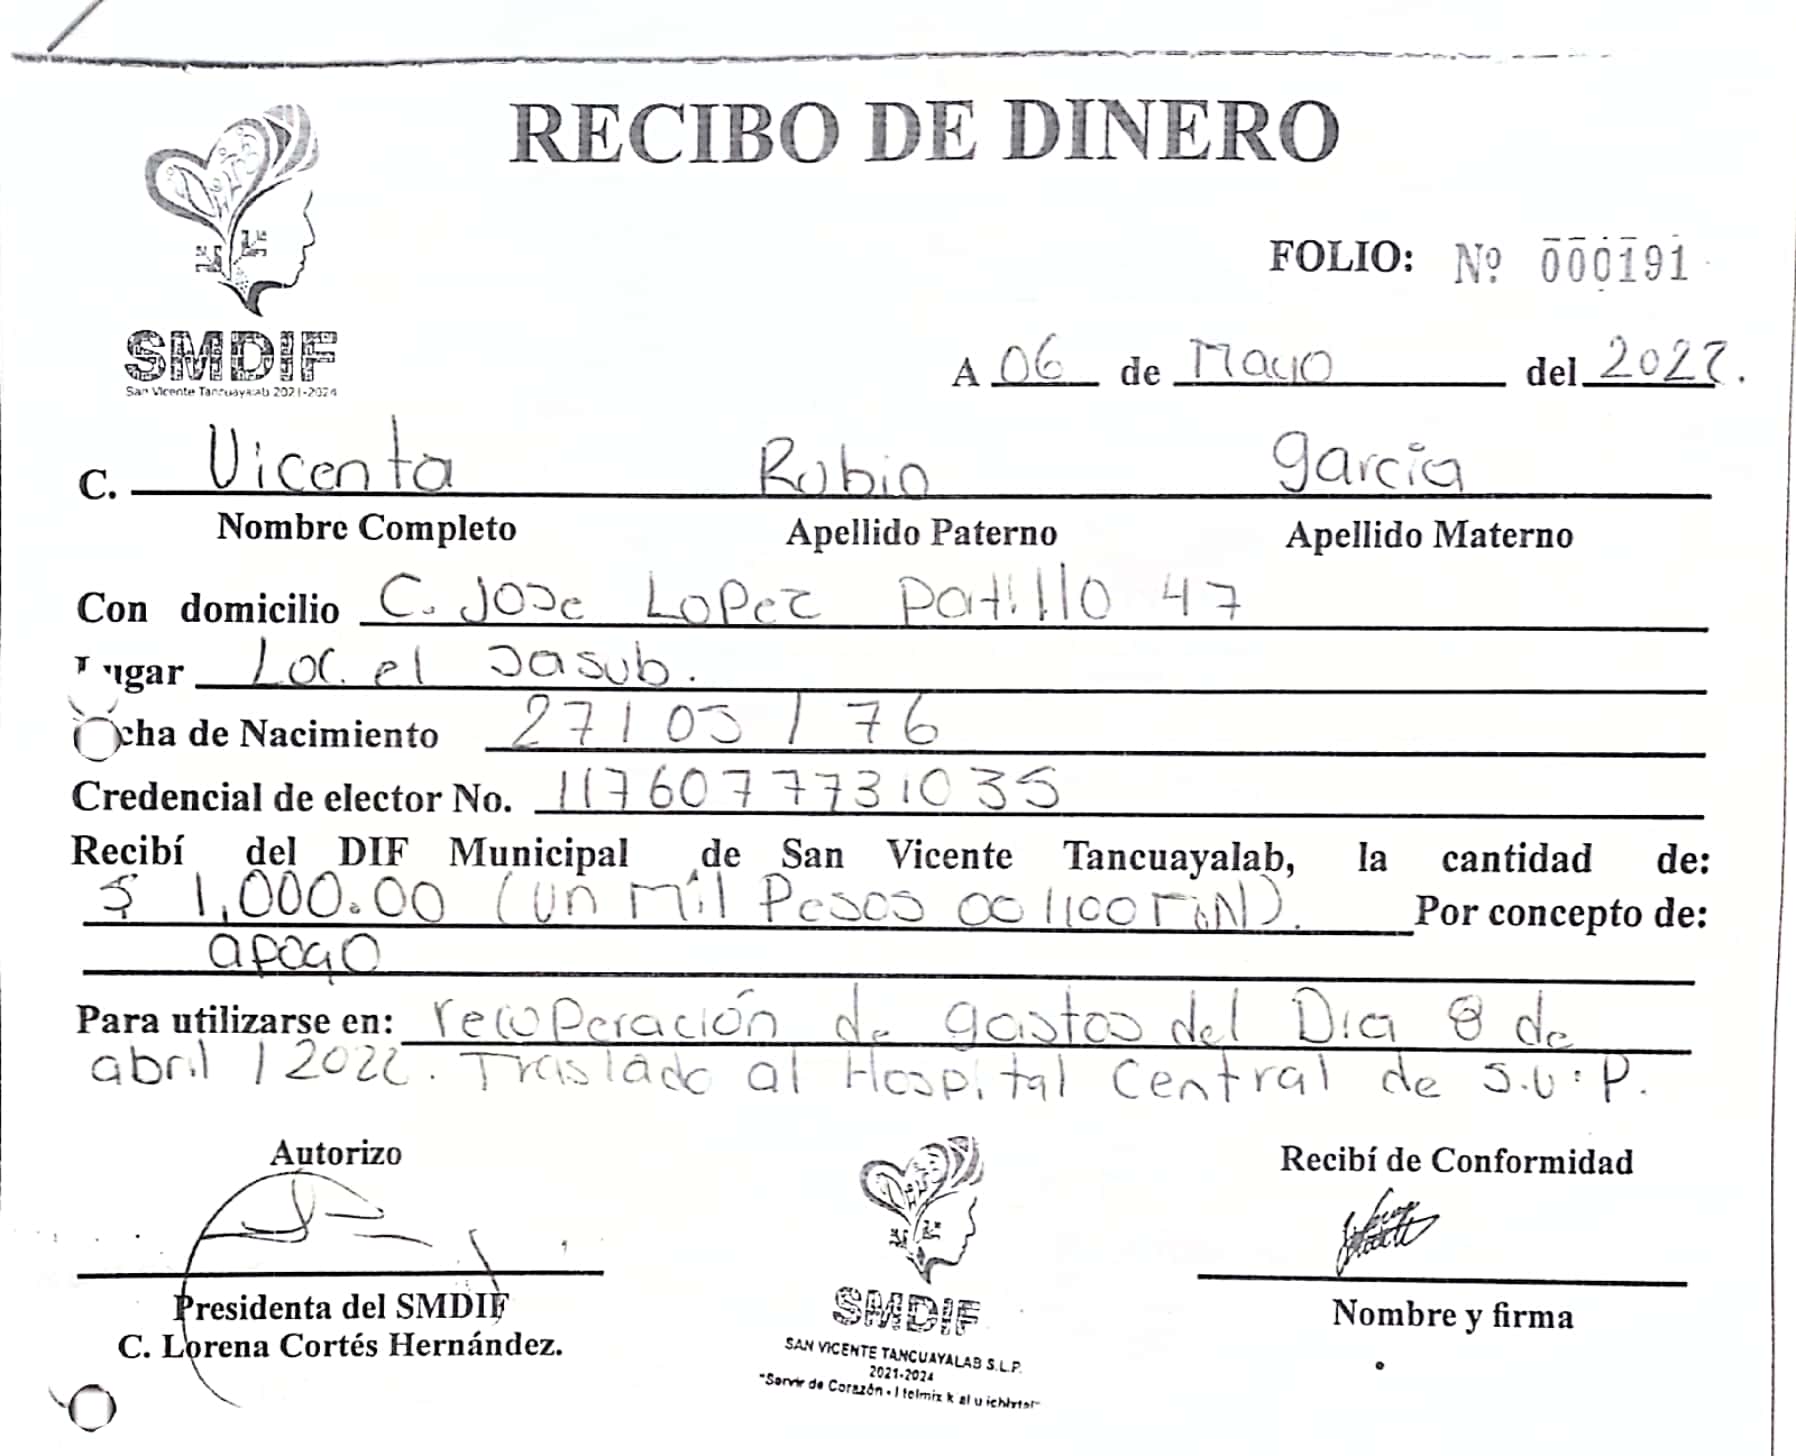 RECIBO DE DINERO
FOLIO: Nº 000191
SMDIF
San Vicente Tancuayalab 2021-2024
A 06 de Mayo del 2022.
C. Vicenta Rubio garcia
Nombre Completo Apellido Paterno Apellido Materno
Con domicilio C. Jose Lopez Portillo 47
Lugar Loc. el Sasub.
Fecha de Nacimiento 27/05/76
Credencial de elector No. 1176077731035
Recibí del DIF Municipal de San Vicente Tancuayalab, la cantidad de:
$ 1,000.00 (un mil Pesos 00/100 M.N). Por concepto de:
apoyo
Para utilizarse en: recuperación de gastos del Dia 8 de
abril / 2022. Traslado al Hospital Central de S.L.P.
Autorizo Recibí de Conformidad
Presidenta del SMDIF
C. Lorena Cortés Hernández.
SMDIF
SAN VICENTE TANCUAYALAB S.L.P.
2021-2024
"Servir de Corazón
Nombre y firma